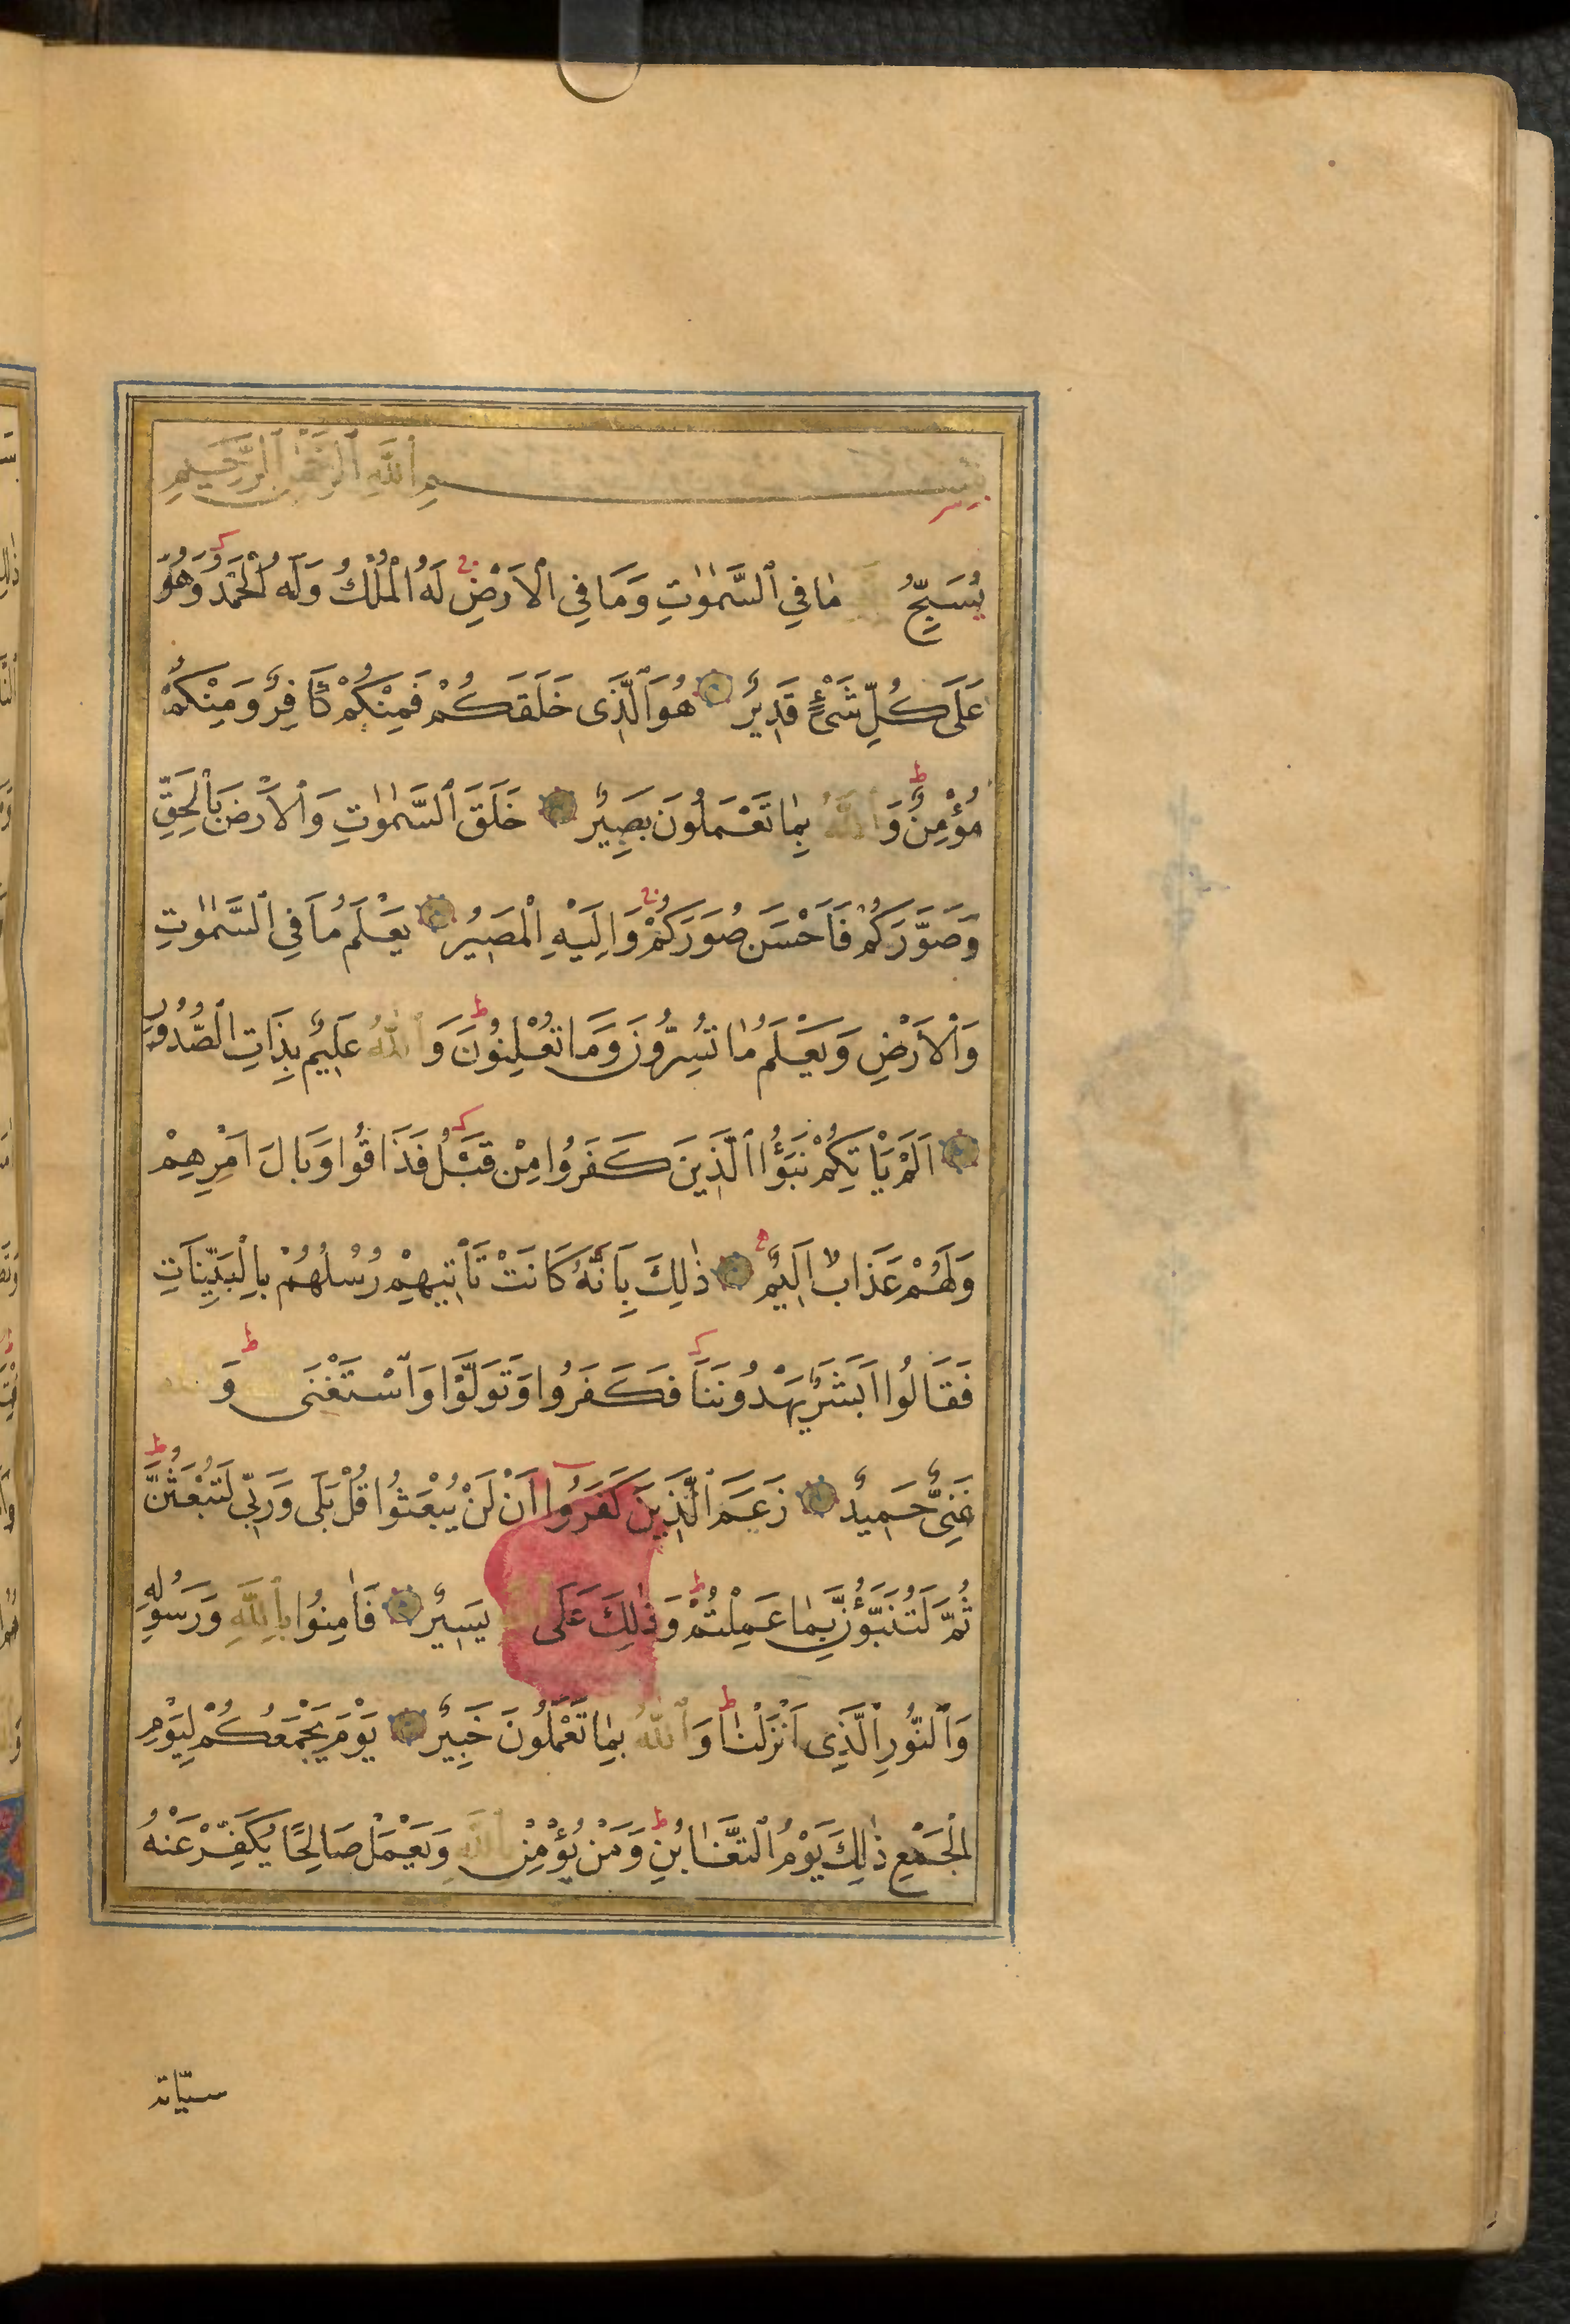 بِسْمِ اللَّهِ الرَّحْمٰنِ الرَّحِيمِ
يُسَبِّحُ مَا فِي السَّمٰوٰتِ وَمَا فِي الْاَرْضِ لَهُ الْمُلْكُ وَلَهُ الْحَمْدُ وَهُوَ
عَلَى كُلِّ شَىْءٍ قَدِيرٌ هُوَ الَّذِى خَلَقَكُمْ فَمِنْكُمْ كَافِرٌ وَمِنْكُمْ
مُؤْمِنٌ وَاللّٰهُ بِمَا تَعْمَلُونَ بَصِيرٌ خَلَقَ السَّمٰوٰتِ وَالْاَرْضَ بِالْحَقِّ
وَصَوَّرَكُمْ فَاَحْسَنَ صُوَرَكُمْ وَاِلَيْهِ الْمَصِيرُ يَعْلَمُ مَا فِي السَّمٰوٰتِ
وَالْاَرْضِ وَيَعْلَمُ مَا تُسِرُّونَ وَمَا تُعْلِنُونَ وَاللّٰهُ عَلِيمٌ بِذَاتِ الصُّدُورِ
اَلَمْ يَاْتِكُمْ نَبَؤُا الَّذِينَ كَفَرُوا مِنْ قَبْلُ فَذَاقُوا وَبَالَ اَمْرِهِمْ
وَلَهُمْ عَذَابٌ اَلِيمٌ ذٰلِكَ بِاَنَّهُ كَانَتْ تَاْتِيهِمْ رُسُلُهُمْ بِالْبَيِّنَاتِ
فَقَالُوا اَبَشَرٌ يَهْدُونَنَا فَكَفَرُوا وَتَوَلَّوْا وَاسْتَغْنَى وَ
غَنِىٌّ حَمِيدٌ زَعَمَ الَّذِينَ كَفَرُوا اَنْ لَنْ يُبْعَثُوا قُلْ بَلَى وَرَبِّى لَتُبْعَثُنَّ
ثُمَّ لَتُنَبَّؤُنَّ بِمَا عَمِلْتُمْ وَذٰلِكَ عَلَى اللَّهِ يَسِيرٌ فَاٰمِنُوا بِاللَّهِ وَرَسُولِهِ
وَالنُّورِ الَّذِى اَنْزَلْنَا وَاللّٰهُ بِمَا تَعْمَلُونَ خَبِيرٌ يَوْمَ يَجْمَعُكُمْ لِيَوْمِ
الْجَمْعِ ذٰلِكَ يَوْمُ التَّغَابُنِ وَمَنْ يُؤْمِنْ بِاللَّهِ وَيَعْمَلْ صَالِحًا يُكَفِّرْ عَنْهُ
سيّاته